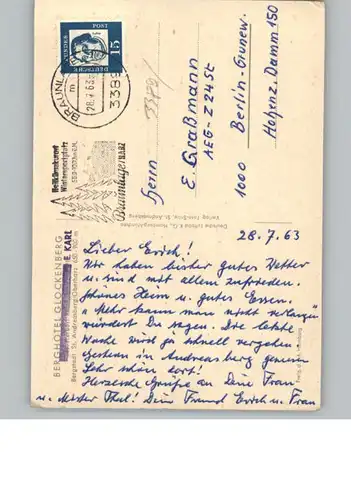 28.7.63
Lieber Erich!
Wir haben bisher gutes Wetter
u. sind mit allem zufrieden.
schönes Heim u. gutes Essen.
"Mehr kann man nicht verlangen"
würdest Du sagen. Die letzte
Woche wird zu schnell vergehen.
Gestern in Andreasberg gewesen
Sehr schön dort!
Herzliche Grüße an Deine Frau
u. Dein Freund Erich u. Frau
Herrn
E. Graßmann
AEG-Z 22 St
1000 Berlin-Grunew.
Hohenz. Damm 150
DEUTSCHE
BUNDES
POST
15
BRAUNLAGE
28.7.63
3389
3389
Heilklimakurort
Wintersportplatz
Braunlage/HARZ
BERGHOTEL GLOCKENBERG
CARL
Bergstadt St. Andreasberg/Oberharz